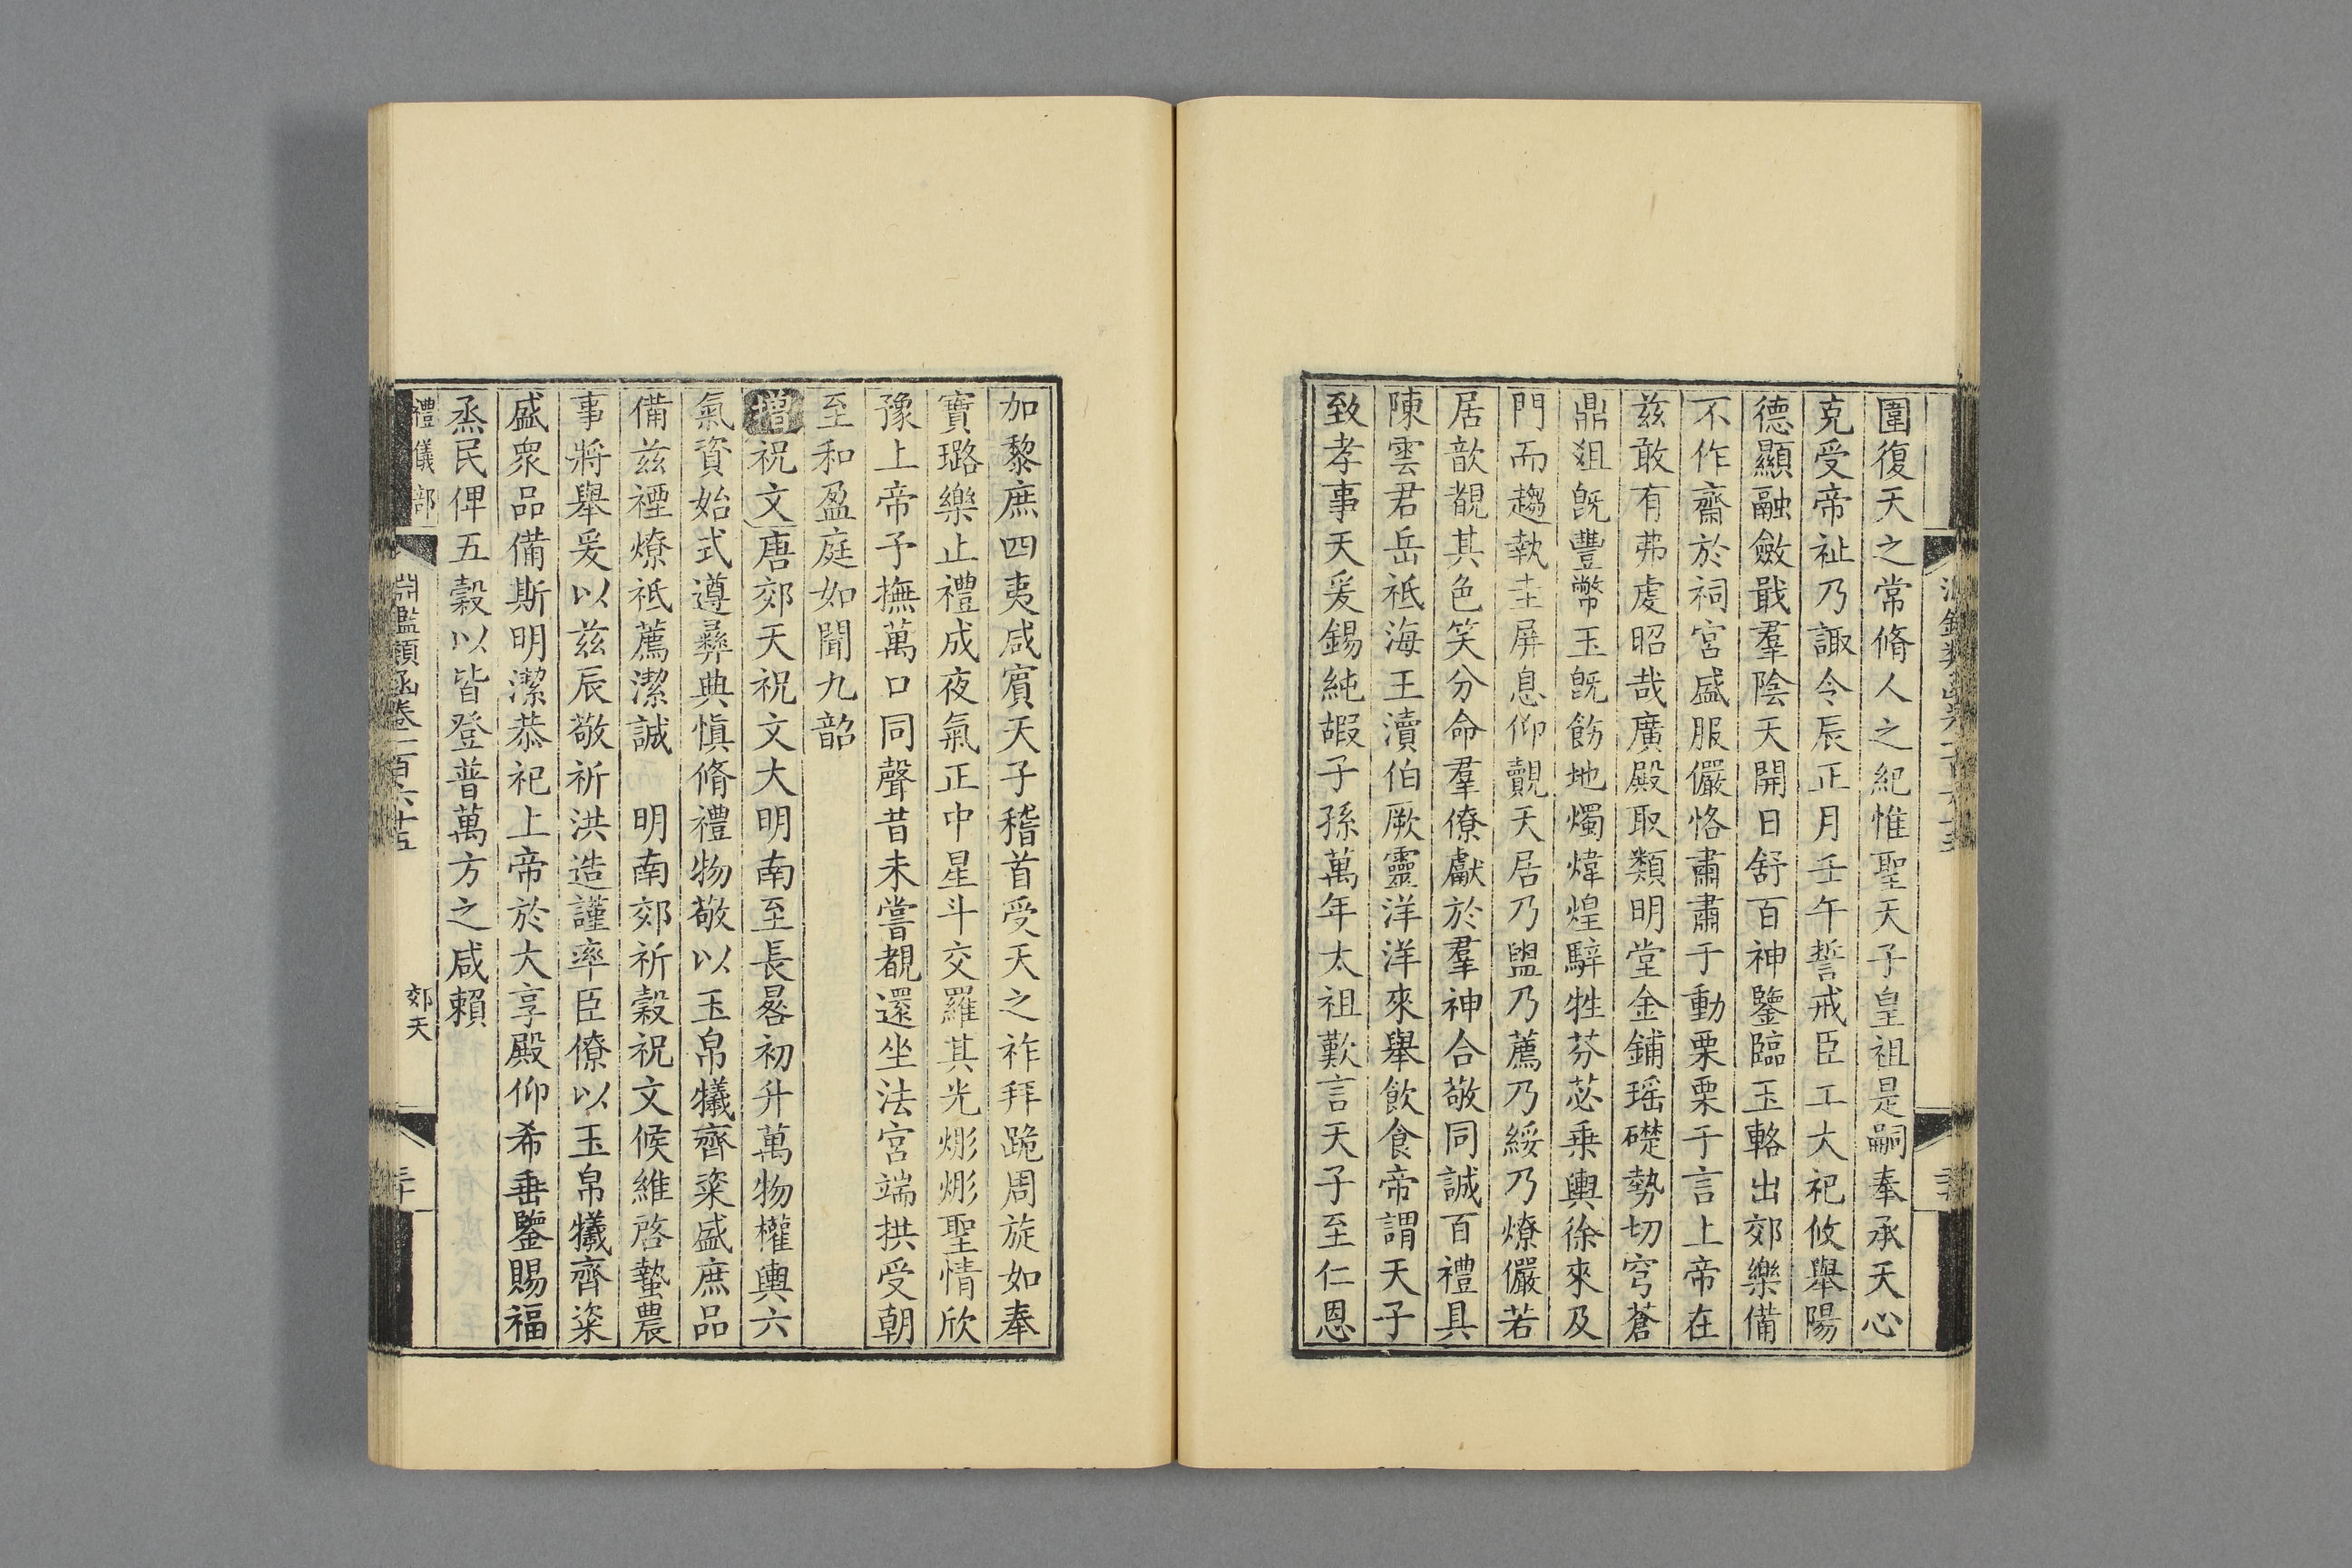 圜復天之常脩人之紀惟聖天子皇祖是嗣奉承天心
克受帝祉乃諏令辰正月壬午誓戒臣工大祀攸舉陽
德顯融斂戢羣陰天開日舒百神鑒臨玉輅出郊樂備
不作齋於祠宮盛服儼恪肅肅于動栗栗于言上帝在
兹敢有弗虔昭哉廣殿取類明堂金鋪瑶礎勢切穹蒼
鼎俎旣豐幣玉旣飭地燭煒煌騂牲芬苾乗輿徐來及
門而趨執圭屏息仰覿天居乃盥乃薦乃綏乃燎儼若
居歆覩其色笑分命羣僚獻於羣神合敬同誠百禮具
陳雲君岳祗海王瀆伯厥靈洋洋來舉飲食帝謂天子
致孝事天爰錫純嘏子孫萬年太祖歎言天子至仁恩
加黎庶四夷咸賓天子稽首受天之祚拜跪周旋如奉
寶璐樂止禮成夜氣正中星斗交羅其光彤彤聖情欣
豫上帝予撫萬口同聲昔未嘗覩還坐法宮端拱受朝
至和盈庭如聞九韶
增祝文唐郊天祝文大明南至長晷初升萬物權輿六
氣資始式遵彞典慎脩禮物敬以玉帛犧齊粢盛庶品
備兹禋燎祗薦潔誠 明南郊祈穀祝文候維啓蟄農
事將舉爰以兹辰敬祈洪造謹率臣僚以玉帛犧齊粢
盛衆品備斯明潔恭祀上帝於大享殿仰希垂鑒賜福
烝民俾五穀以皆登普萬方之咸賴
禮儀部 淵鑑類函卷一百六十五 郊天